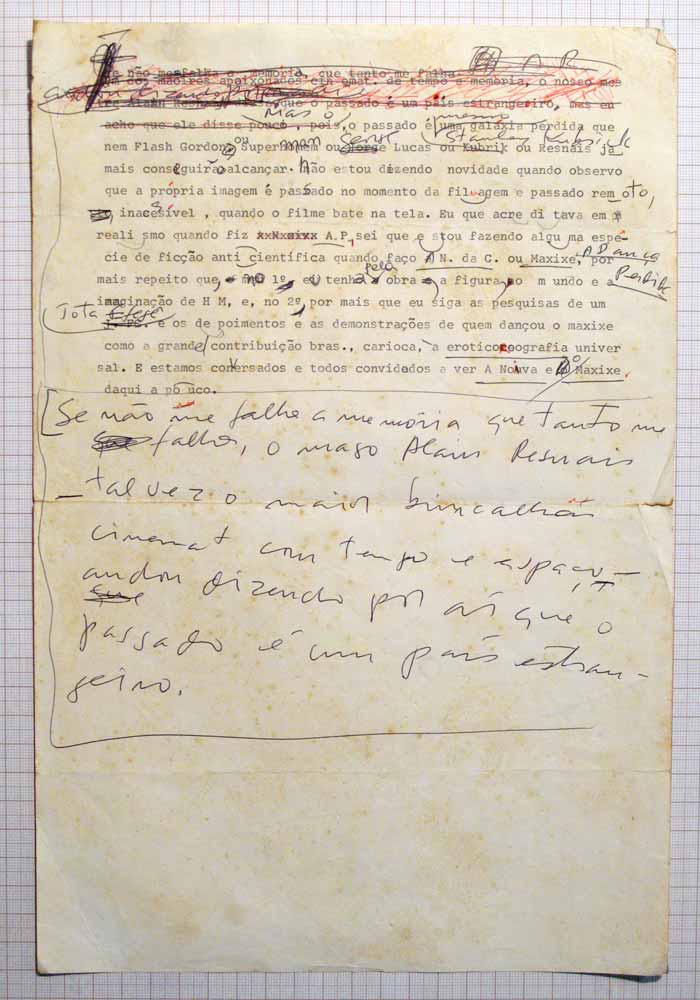 A R
Se não me falha a memória, que tanto me falha
um dos amores apaixonados cin emat. de tempo e memória, o nosso mes
andou dizendo por
tre Alain Resnais que o passado é um país estrangeiro, mas eu
Mas o mesmo
acho que ele disse pouco, pois, o passado é uma galáxia perdida que
ou man Stanley Kubrick
nem Flash Gordon, Super mem ou Jorge Lucas ou Kubrik ou Resnais já
mais conseguirão alcançar. Não estou dizendo novidade quando observo
que a própria imagem é passado no momento da filmagem e passado rem oto,
inacessível , quando o filme bate na tela. Eu que acre di tava em
reali smo quando fiz A.P, sei que e stou fazendo algu ma espé-
cie de ficção anti científica quando faço A N. da C. ou Maxixe, A Dança
Perdida
por
pela
mais repeito que, no 1º, eu tenha a obra e a figura, o m undo e a
imaginação de H M, e, no 2º, por mais que eu siga as pesquisas de um
Jota Efegê
e os de poimentos e as demonstrações de quem dançou o maxixe
como a grande contribuição bras., carioca, a erotico eografia univer
sal. E estamos conversados e todos convidados a ver A Noiva e o Maxixe.
daqui a po uco.
[Se não me falha a memória que tanto me
falha, o mago Alain Resnais
– talvez o maior brincalhão
cinemat com tempo e espaço –
andou dizendo por aí que o
passado é um país estran-
geiro.